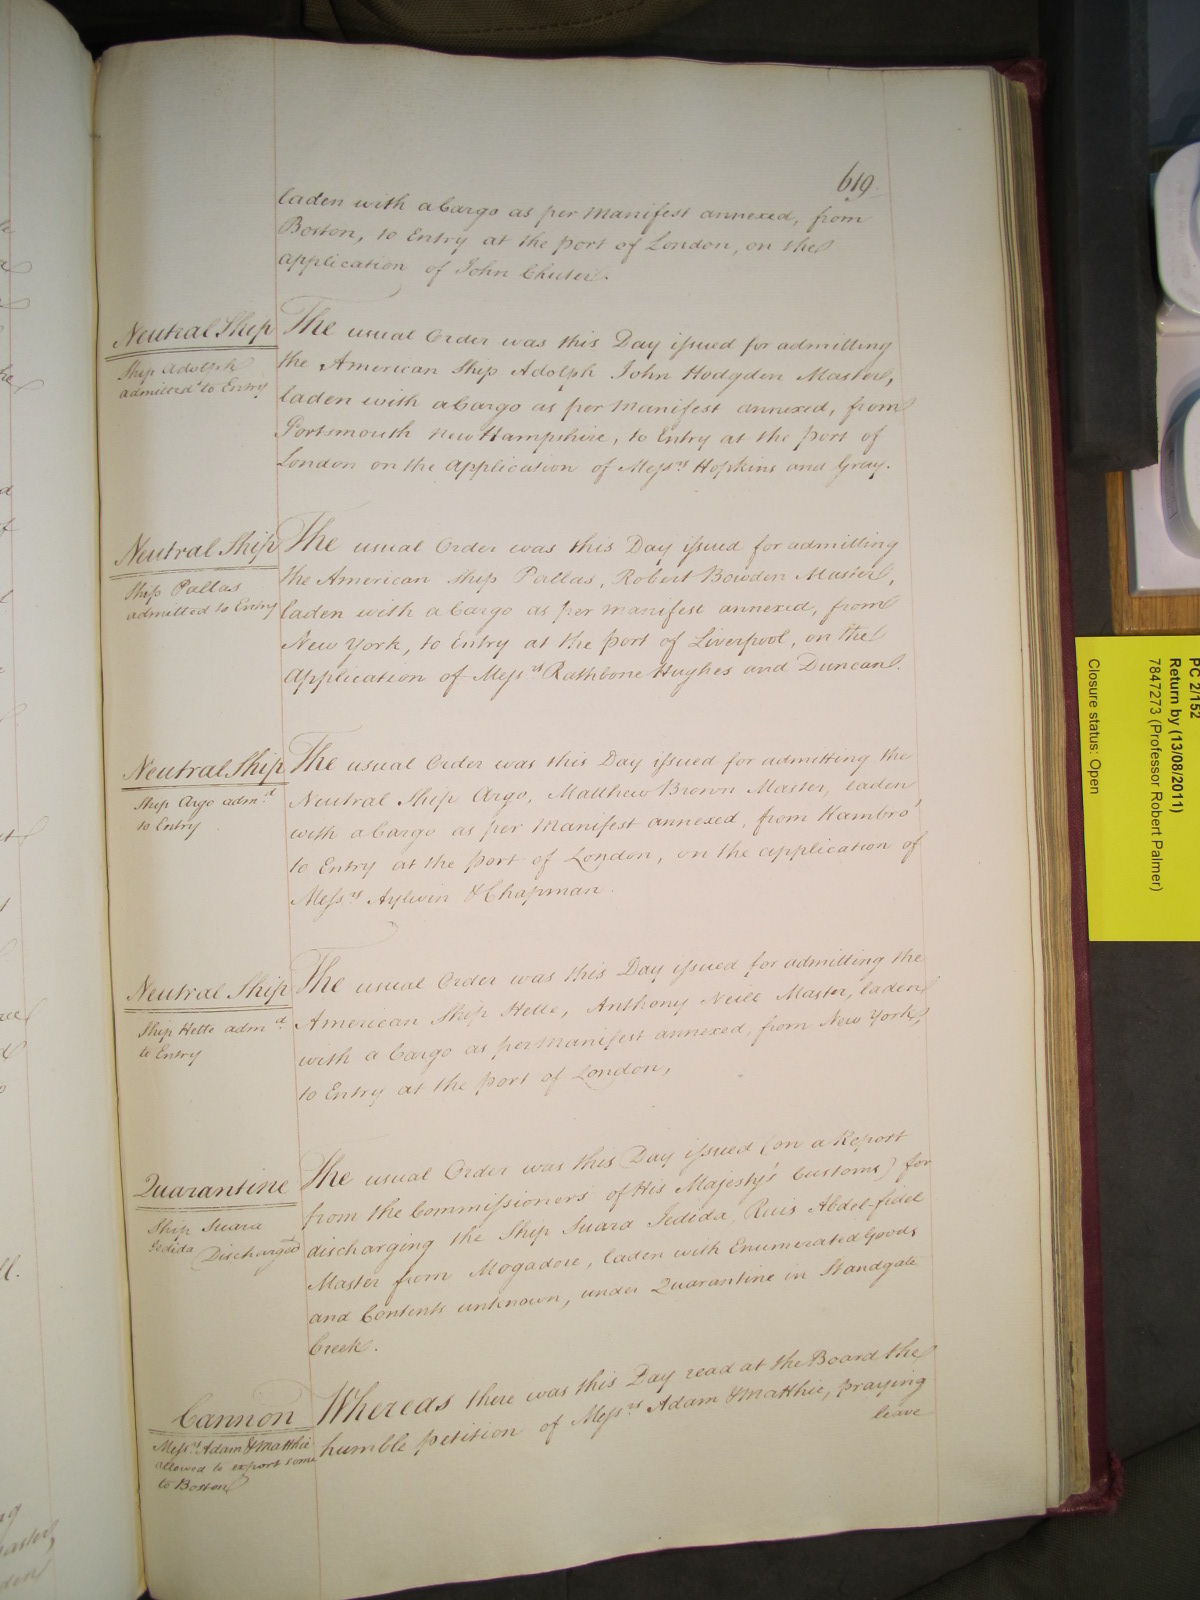 619
laden with a Cargo as per Manifest annexed, from
Boston, to Entry at the port of London, on the
application of John Chuter.
Neutral Ship
Ship Adolph
admitted to Entry
The usual Order was this Day issued for admitting
the American Ship Adolph John Hodgden Master,
laden with a Cargo as per Manifest annexed, from
Portsmouth New Hampshire, to Entry at the port of
London on the application of Messrs Hopkins and Gray.
Neutral Ship
Ship Pallas
admitted to Entry
The usual Order was this Day issued for admitting
the American Ship Pallas, Robert Bowden Master,
laden with a Cargo as per manifest annexed, from
New York, to Entry at the port of Liverpool, on the
Application of Messrs Rathbone Hughes and Duncan.
Neutral Ship
Ship Argo admd
to Entry
The usual Order was this Day issued for admitting the
Neutral Ship Argo, Matthew Brown Master, laden
with a Cargo as per Manifest annexed, from Hambro'
to Entry at the port of London, on the application of
Messrs Aylwin & Chapman
Neutral Ship
Ship Hette admd
to Entry
The usual Order was this Day issued for admitting the
American Ship Hette, Anthony Neill Master, laden
with a Cargo as per Manifest annexed, from New York,
to Entry at the port of London,
Quarantine
Ship Suara
Jedida Discharged
The usual Order was this Day issued (on a Report
from the Commissioners of His Majesty's Customs) for
discharging the Ship Suara Jedida, Ruis Abdel-fidel
Master from Mogadore, laden with Enumerated Goods
and Contents unknown, under Quarantine in Standgate
Creek.
Cannon
Messrs Adam & Matthie
allowed to export some
to Boston
Whereas there was this Day read at the Board the
humble petition of Messrs Adam & Matthie, praying
leave
PC 2/152
Return by (13/08/2011)
7847273 (Professor Robert Palmer)
Closure status: Open